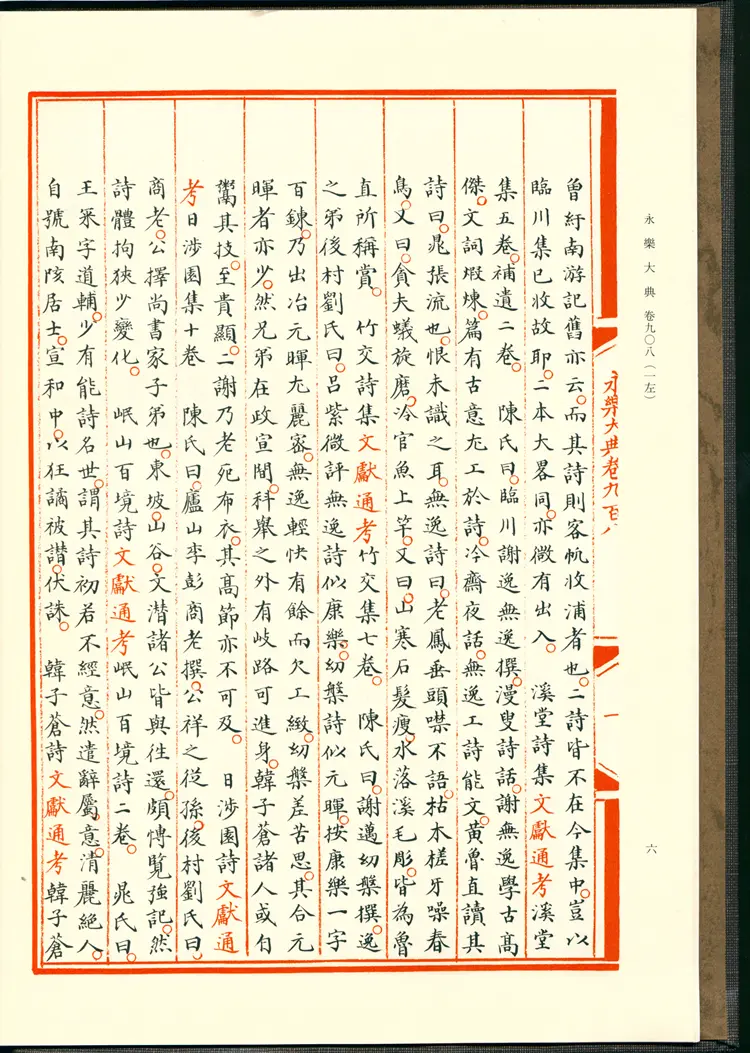 永樂大典 卷九〇八（一左）
六
永樂大典卷九百八
一
曾紆南游記舊亦云而其詩則客帆收浦者也二詩皆不在今集中豈以
臨川集已收故耶二本大畧同亦微有出入 溪堂詩集文獻通考溪堂
集五卷補遺二卷 陳氏曰臨川謝逸無逸撰漫叟詩話謝無逸學古高
傑文詞煅煉篇有古意尤工於詩冷齋夜話無逸工詩能文黄魯直讀其
詩曰晁張流也恨未識之耳無逸詩曰老鳳垂頭噤不語枯木槎牙噪春
鳥又曰貪夫蟻旋磨冷官魚上竿又曰山寒石髮瘦水落溪毛彫皆為魯
直所稱賞 竹交詩集文獻通考竹交集七卷 陳氏曰謝薖幼槃撰逸
之弟後村劉氏曰吕紫微評無逸詩似康樂幼槃詩似元暉按康樂一字
百鍊乃出冶元暉尤麗密無逸輕快有餘而欠工緻幼槃差苦思其合元
暉者亦少然兄弟在政宣間科舉之外有岐路可進身韓子蒼諸人或自
鬻其技至貴顯二謝乃老死布衣其高節亦不可及 日涉園詩文獻通
考日涉園集十卷 陳氏曰廬山李彭商老撰公祥之從孫後村劉氏曰
商老公擇尚書家子弟也東坡山谷文潜諸公皆與往還頗愽覧強記然
詩體拘狹少變化 岷山百境詩文獻通考岷山百境詩二卷 晁氏曰
王寀字道輔少有能詩名世謂其詩初若不經意然遣辭屬意清麗絶人
自號南陔居士宣和中以狂譎被譖伏誅 韓子蒼詩文獻通考韓子蒼